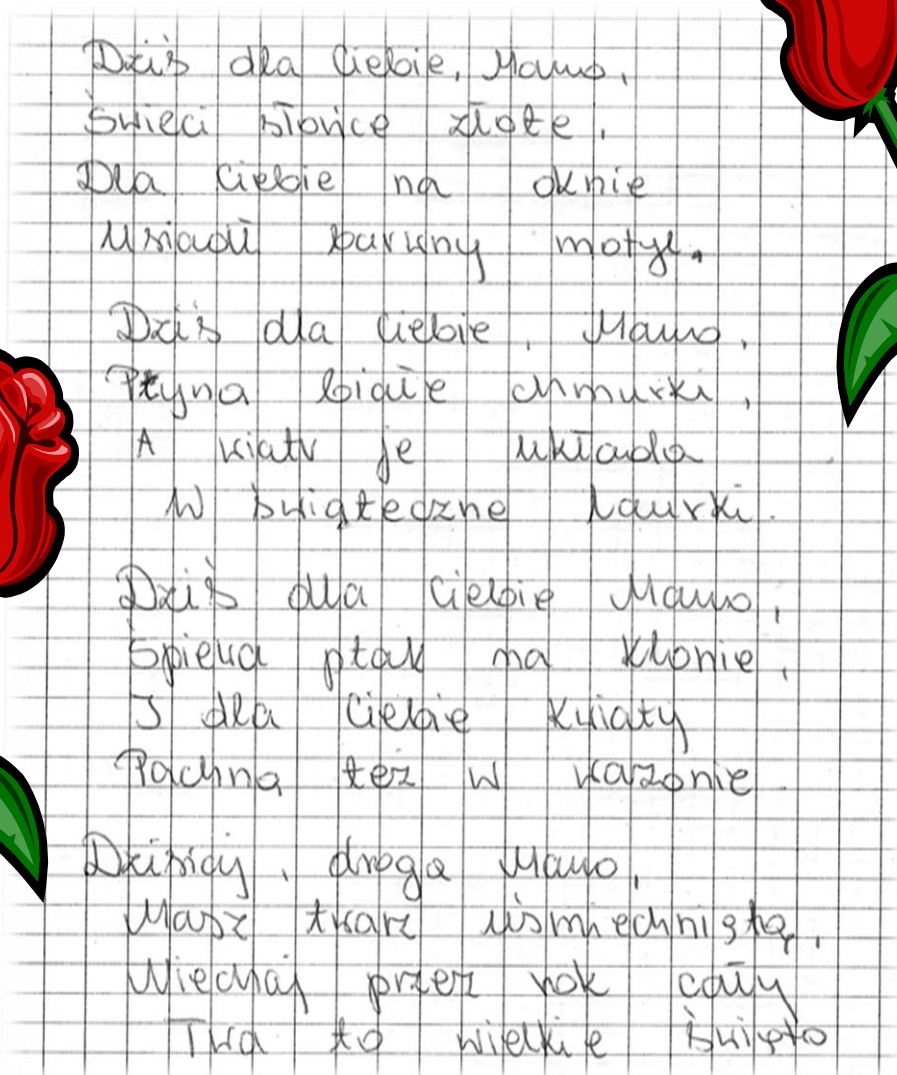 Dziś dla Ciebie, Mamo,
Świeci słońce złote,
Dla Ciebie na oknie
Usiadł barwny motyl.
Dziś dla Ciebie, Mamo,
Płyną białe chmurki,
A wiatr je układa
W świąteczne laurki.
Dziś dla Ciebie Mamo,
Śpiewa ptak na klonie,
I dla Ciebie kwiaty
Pachną też w wazonie
Dzisiaj, droga Mamo,
Masz twarz uśmiechniętą,
Niechaj przez rok cały
Trwa to wielkie święto